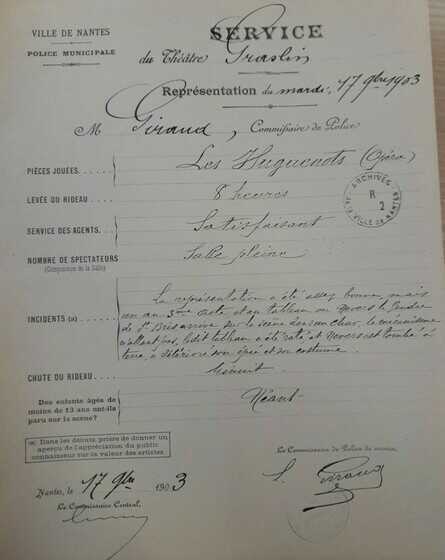 VILLE DE NANTES
POLICE MUNICIPALE
SERVICE
du Théâtre Graslin
Représentation du mardi, 17 9bre 1903
M Giraud, Commissaire de Police
PIÈCES JOUÉES. Les Huguenots (Opéra)
LEVÉE DU RIDEAU 8 heures
SERVICE DES AGENTS. Satisfaisant
NOMBRE DE SPECTATEURS Salle pleine
(Composition de la Salle)
ARCHIVES
R
2
DE LA VILLE DE NANTES
INCIDENTS (a)
La représentation a été assez bonne, mais
au 3me acte, au tableau ou Nevers le Gendre
de St Bris arrive sur la scène dans son char, le mécanisme
n'allant pas, ledit tableau a été raté et Nevers est tombé à
terre, a détérioré son épée et son costume.
CHUTE DU RIDEAU Minuit
Des enfants âgés de
moins de 13 ans ont-ils
paru sur la scène?
Néant
(a) Dans les débuts, prière de donner un
aperçu de l'appréciation du public
connaisseur sur la valeur des artistes
Nantes, le 17 9bre 1903
Le Commissaire Central,
Le Commissaire de Police de service,
Giraud